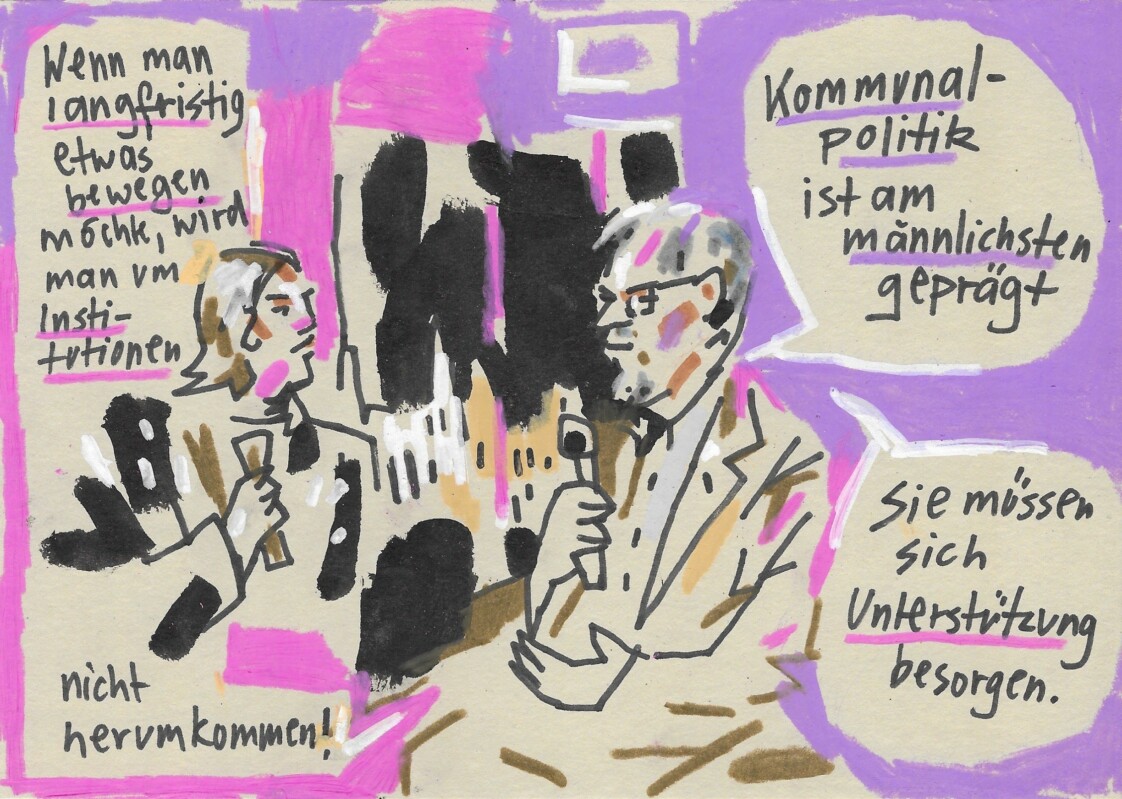 Wenn man
langfristig
etwas
bewegen
möchte, wird
man um
Insti-
tutionen
nicht
herumkommen!
Kommunal-
politik
ist am
männlichsten
geprägt
Sie müssen
sich
Unterstützung
besorgen.